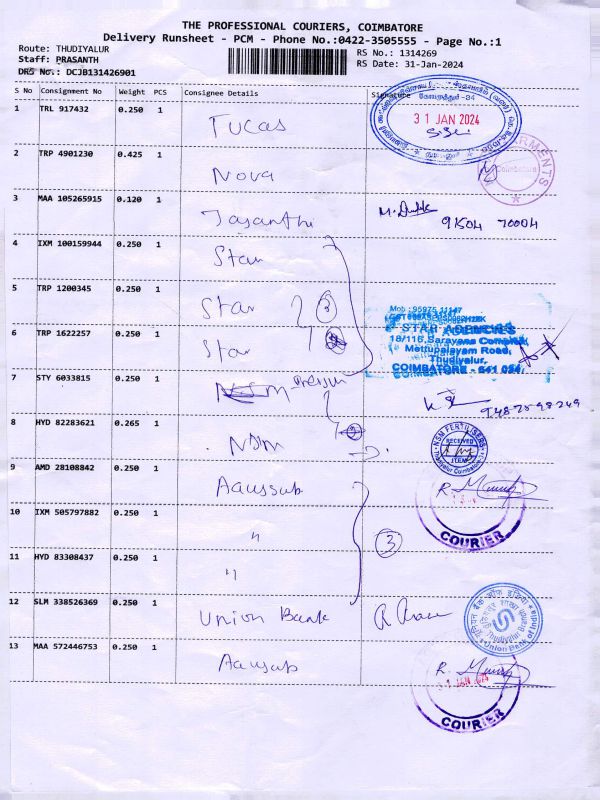 THE PROFESSIONAL COURIERS, COIMBATORE
Delivery Runsheet - PCM - Phone No.:0422-3505555 - Page No.:1
Route: THUDIYALUR
RS No.: 1314269
Staff: PRASANTH
RS Date: 31-Jan-2024
DRS No.: DCJB131426901
S No Consignment No Weight PCS Consignee Details Signature
31 JAN 2024
1 TRL 917432 0.250 1 Tucas
2 TRP 4901230 0.425 1 Nova
Coimbatore
3 MAA 105265915 0.120 1 Jayanthi
91504 70004
4 IXM 100159944 0.250 1 Star
5 TRP 1200345 0.250 1 Star
Mob: 95975 11147
STAR AGENCIES
18/116, Saravana Complex,
Mettupalayam Road,
Thudiyalur,
COIMBATORE - 641 034
6 TRP 1622257 0.250 1 Star
7 STY 6033815 0.250 1
8 HYD 82283621 0.265 1 NSM
NSM FERTILISERS
RECEIVED
ITEM
9 AMD 28108842 0.250 1
COURIER
10 IXM 505797882 0.250 1 "
3
11 HYD 83308437 0.250 1 "
12 SLM 338526369 0.250 1 Union Bank
Union Bank of India
13 MAA 572446753 0.250 1
COURIER